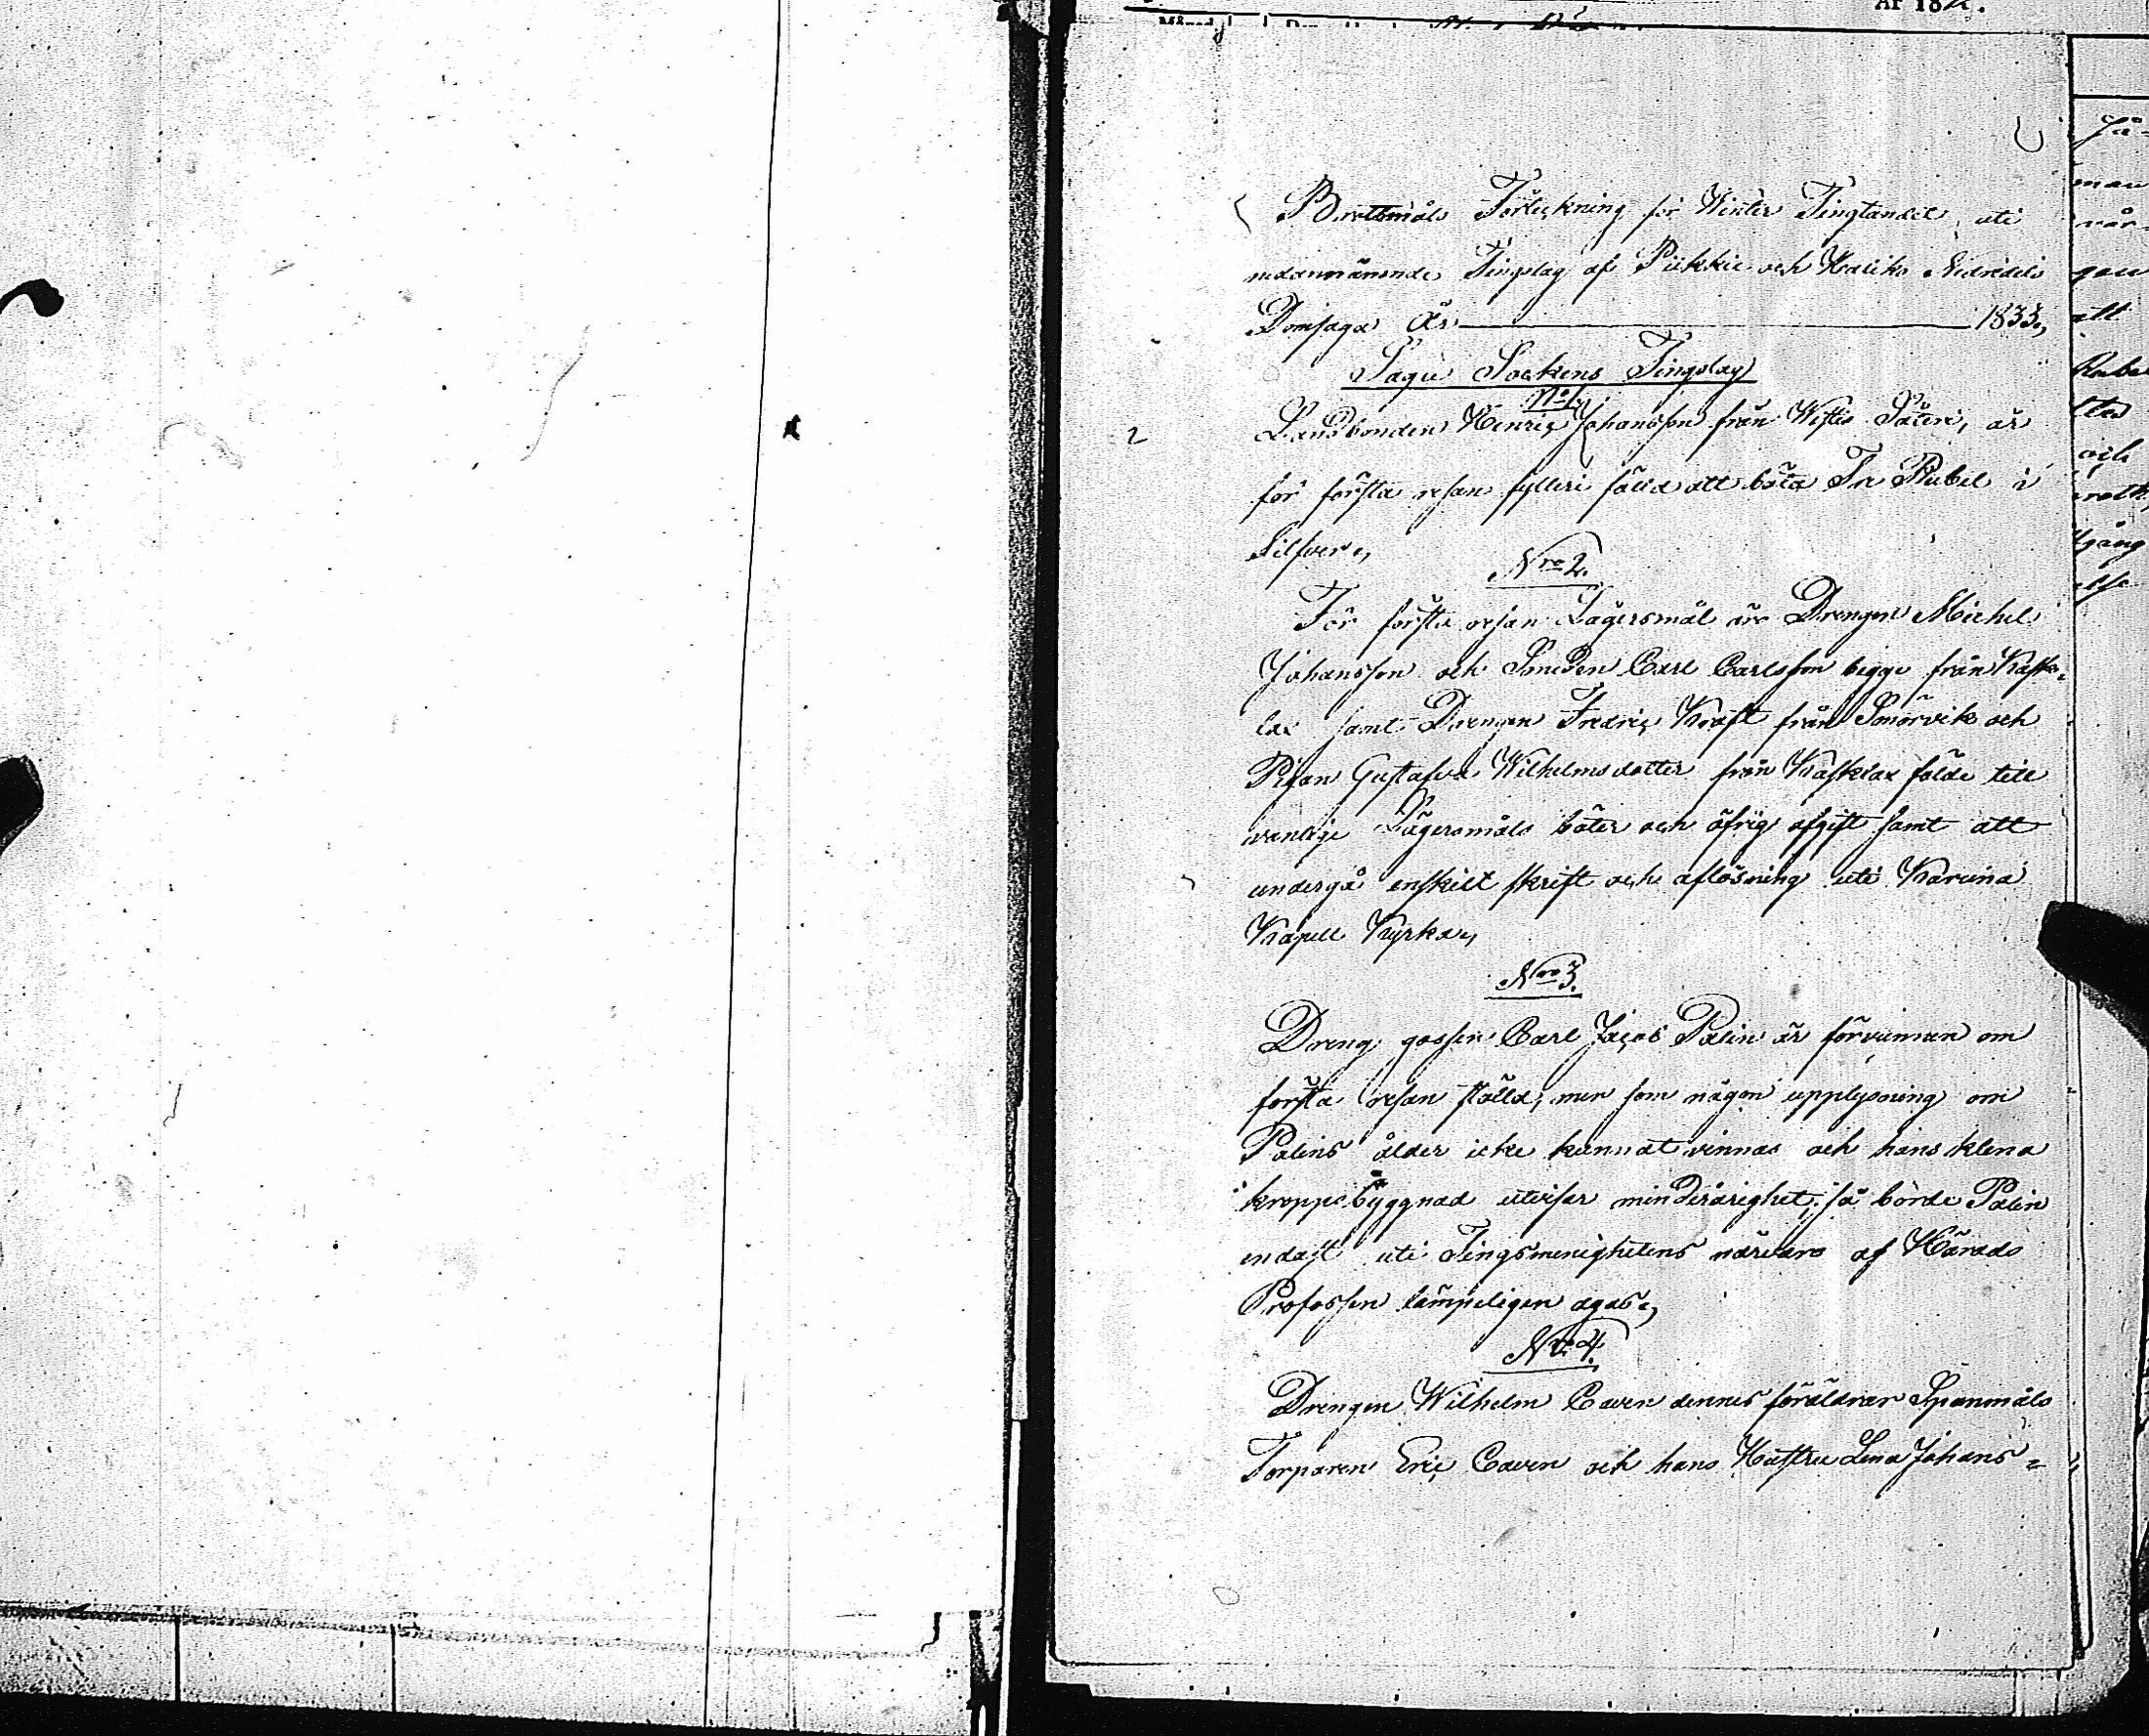 År 18
Brottmåls Förteckning för Winter Tingtandet, uti
nedannämnde Tingslag af Piikkie och Haliko Nedredels
Domsaga År 1833,
Sagu Sockens Tingslag
No 1,
2
Landbonden Henric Johansson från Wistes Säteri, är
för första resan fylleri fälld att böta Tre Rubel i
Silfver.,
Nro 2.
För första resan Lägersmål äro Drengen Michel
Johansson och Smeden Carl Carlsson begge från Kask-
lax samt Drengen Fredric Kraft från Smörvik och
Pigan Gustafva Wilhelmsdotter från Kasklax fälde till
vanlige Lägersmåls böter och öfrig afgift samt att
undergå enskilt skrift och aflösning uti Karuna
Kapell Kyrka.,
Nro 3.
Dreng gossen Carl Jacob Palin är förvunnen om
första resan stöld, men som någon upplysning om
Palins ålder icke kunnat vinnas och hans klena
kroppsbyggnad utvisar minderårighet, så borde Palin
endast uti Tingsmenighetens närvaro af Härads
Profossen lämpeligen agas.,
Nro 4.
Drengen Wilhelm Caven dennes föräldrar Spanmåls
Torparen Eric Caven och hans Hustru Lena Johans-
gen
att
och
gång